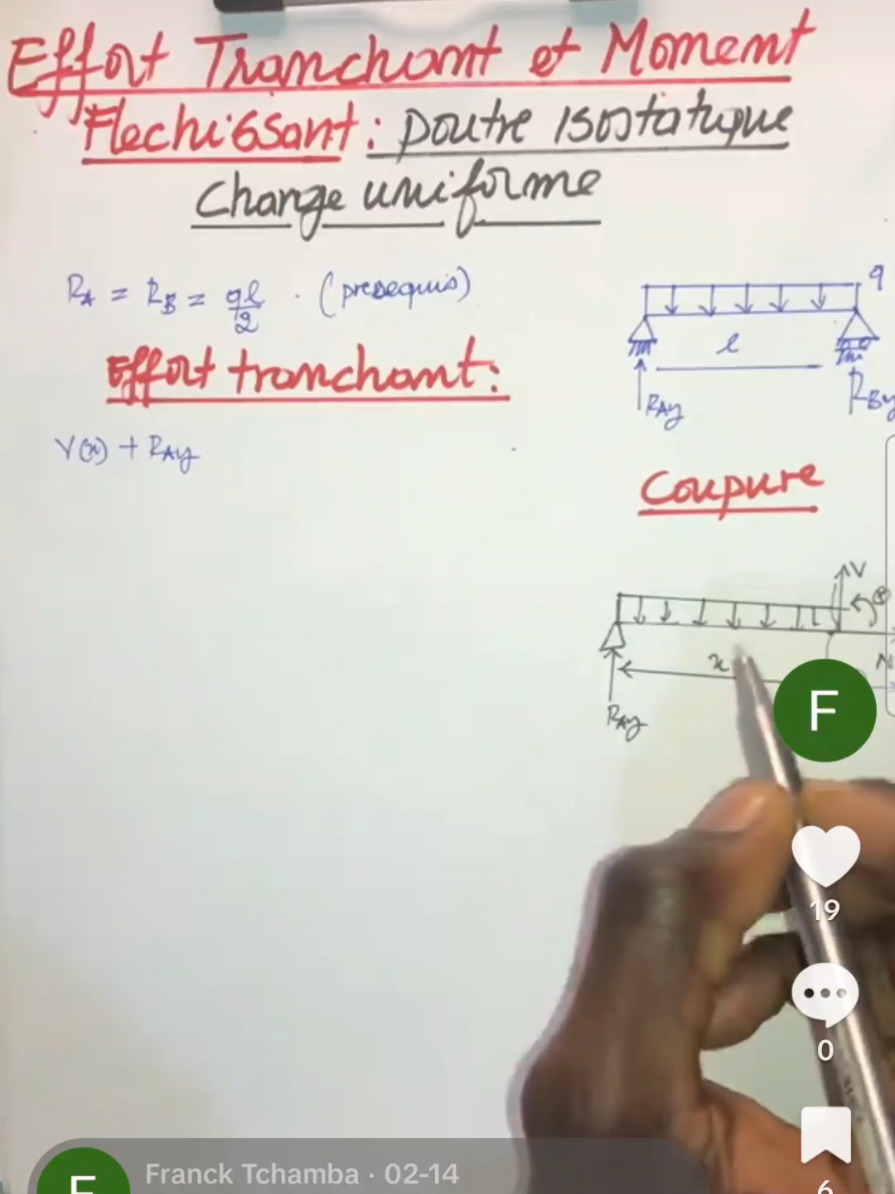 Effort Tranchant et Moment
Flechissant : poutre isostatique
Charge uniforme
RA = RB = ql/2 . (prerequis)
q
l
RAy
RBy
Effort tranchant:
V(x) + RAy
Coupure
V
⊕
N
x
RAy
F
19
0
6
F
Franck Tchamba · 02-14